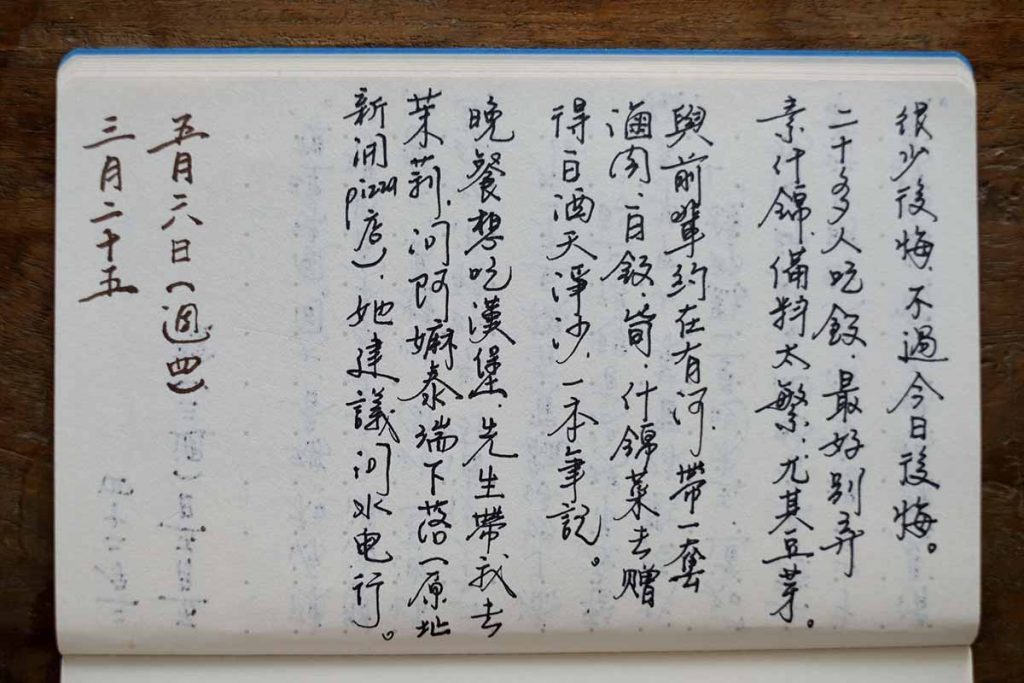 很少後悔,不過今日後悔。
二十多人吃飯,最好別弄
素什錦,備料太繁,尤其豆芽。
與前輩約在有河,帶一套
滷肉、白飯、筍、什錦菜去,贈
得白酒天淨沙,一本
晚餐想吃漢堡,先生帶我去
茉莉,問阿嫲泰端下落(原址
新開pizza店),她建議問水电行。
五月六日(週四)
三月二十五